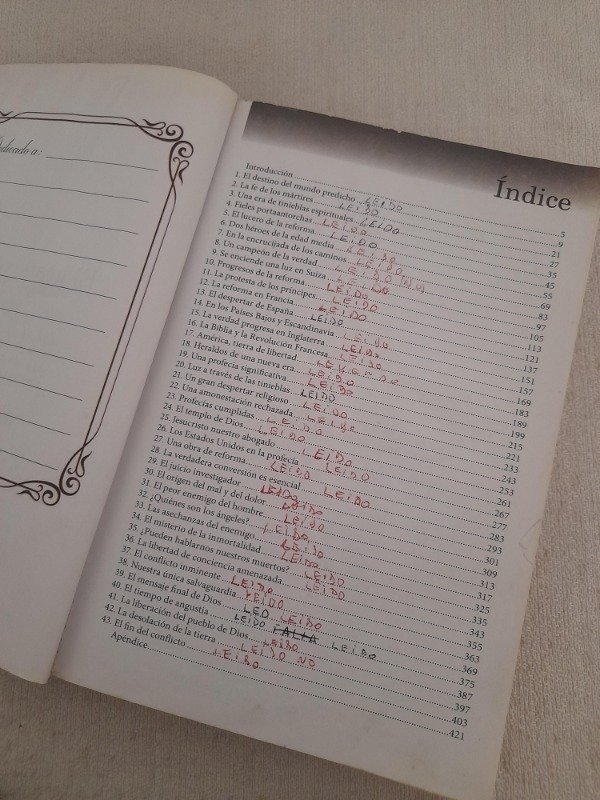 Dedicado a:
Índice
Introducción 5
1. El destino del mundo predicho LEIDO 9
2. La fe de los mártires LEIDO 21
3. Una era de tinieblas espirituales LEIDO 27
4. Fieles portaantorchas LEIDO 35
5. El lucero de la reforma LEIDO 45
6. Dos héroes de la edad media LEIDO 55
7. En la encrucijada de los caminos LEIDO 69
8. Un campeón de la verdad LEIDO 83
9. Se enciende una luz en Suiza LEIDO 97
10. Progresos de la reforma LEIDO 105
11. La protesta de los príncipes LEIDO 113
12. La reforma en Francia LEIDO 121
13. El despertar de España LEIDO 137
14. En los Países Bajos y Escandinavia LEIDO 151
15. La verdad progresa en Inglaterra LEIDO 157
16. La Biblia y la Revolución Francesa LEIDO 169
17. América, tierra de libertad 183
18. Heraldos de una nueva era LEIDO 189
19. Una profecía significativa LEIDO 199
20. Luz a través de las tinieblas LEIDO 215
21. Un gran despertar religioso LEIDO 221
22. Una amonestación rechazada LEIDO 233
23. Profecías cumplidas LEIDO 243
24. El templo de Dios LEIDO 253
25. Jesucristo nuestro abogado LEIDO 261
26. Los Estados Unidos en la profecía LEIDO 267
27. Una obra de reforma LEIDO 277
28. La verdadera conversión es esencial LEIDO 283
29. El juicio investigador LEIDO 293
30. El origen del mal y del dolor LEIDO 301
31. El peor enemigo del hombre LEIDO 309
32. ¿Quiénes son los ángeles? LEIDO 313
33. Las asechanzas del enemigo LEIDO 317
34. El misterio de la inmortalidad LEIDO 325
35. ¿Pueden hablarnos nuestros muertos? LEIDO 335
36. La libertad de conciencia amenazada LEIDO 343
37. El conflicto inminente LEIDO 355
38. Nuestra única salvaguardia LEIDO 363
39. El mensaje final de Dios LEO LEIDO 369
40. El tiempo de angustia LEIDO FALTA LEIDO 375
41. La liberación del pueblo de Dios LEIDO 387
42. La desolación de la tierra LEIDO NO 397
43. El fin del conflicto LEIDO 403
Apéndice 421